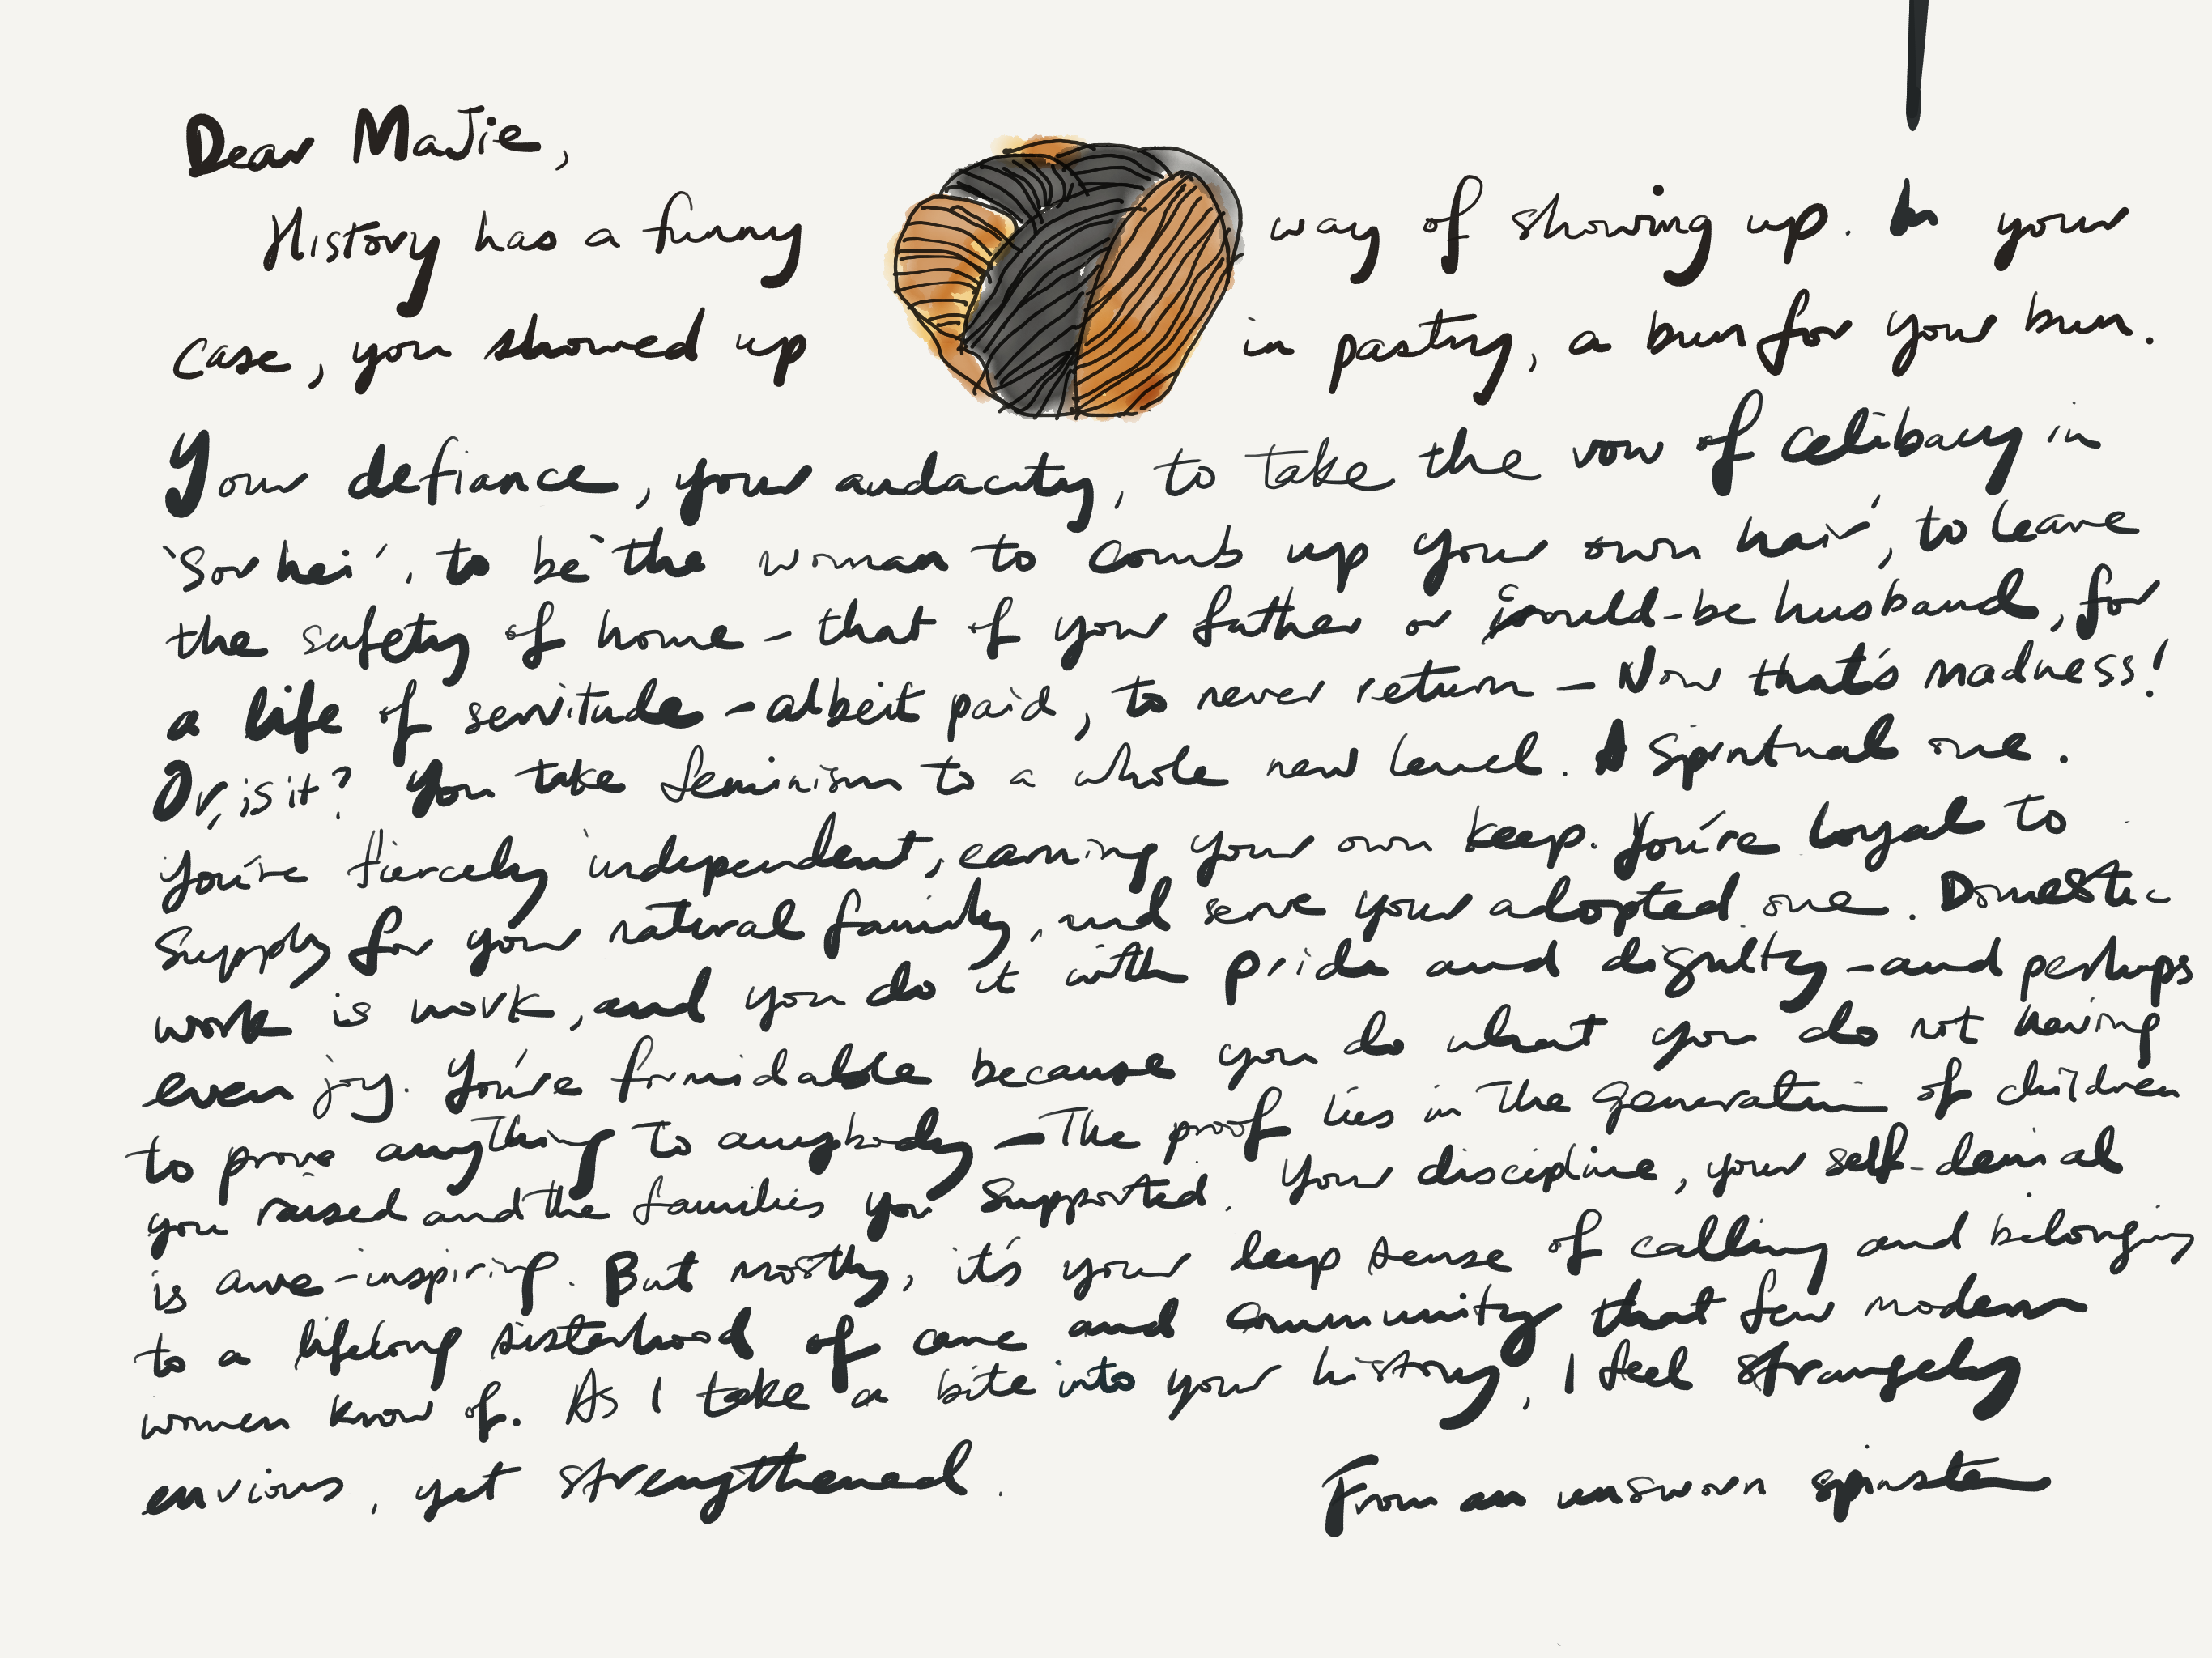 Dear MaJie,
History has a funny way of showing up. In your
case, you showed up in pastry, a bun for your bun.
Your defiance, your audacity, to take the vow of celibacy in
'Sor hei', to be 'the woman to comb up your own hair', to leave
the safety of home – that of your father or would-be husband, for
a life of servitude – albeit paid, to never return – Now that's madness!
Or, is it? You take feminism to a whole new level. A Spiritual one.
You're fiercely independent, earning your own keep. You're loyal to
Supply for your natural family, and serve your adopted one. Domestic
work is work, and you do it with pride and dignity – and perhaps
even joy. You're formidable because you do what you do not having
to prove anything to anybody – The proof lies in the generation of children
you raised and the families you supported. Your discipline, your self-denial
is awe-inspiring. But mostly, it's your deep sense of calling and belonging
to a lifelong sisterhood of care and community that few modern
women know of. As I take a bite into your history, I feel strangely
envious, yet strengthened.
From an unsworn spinster